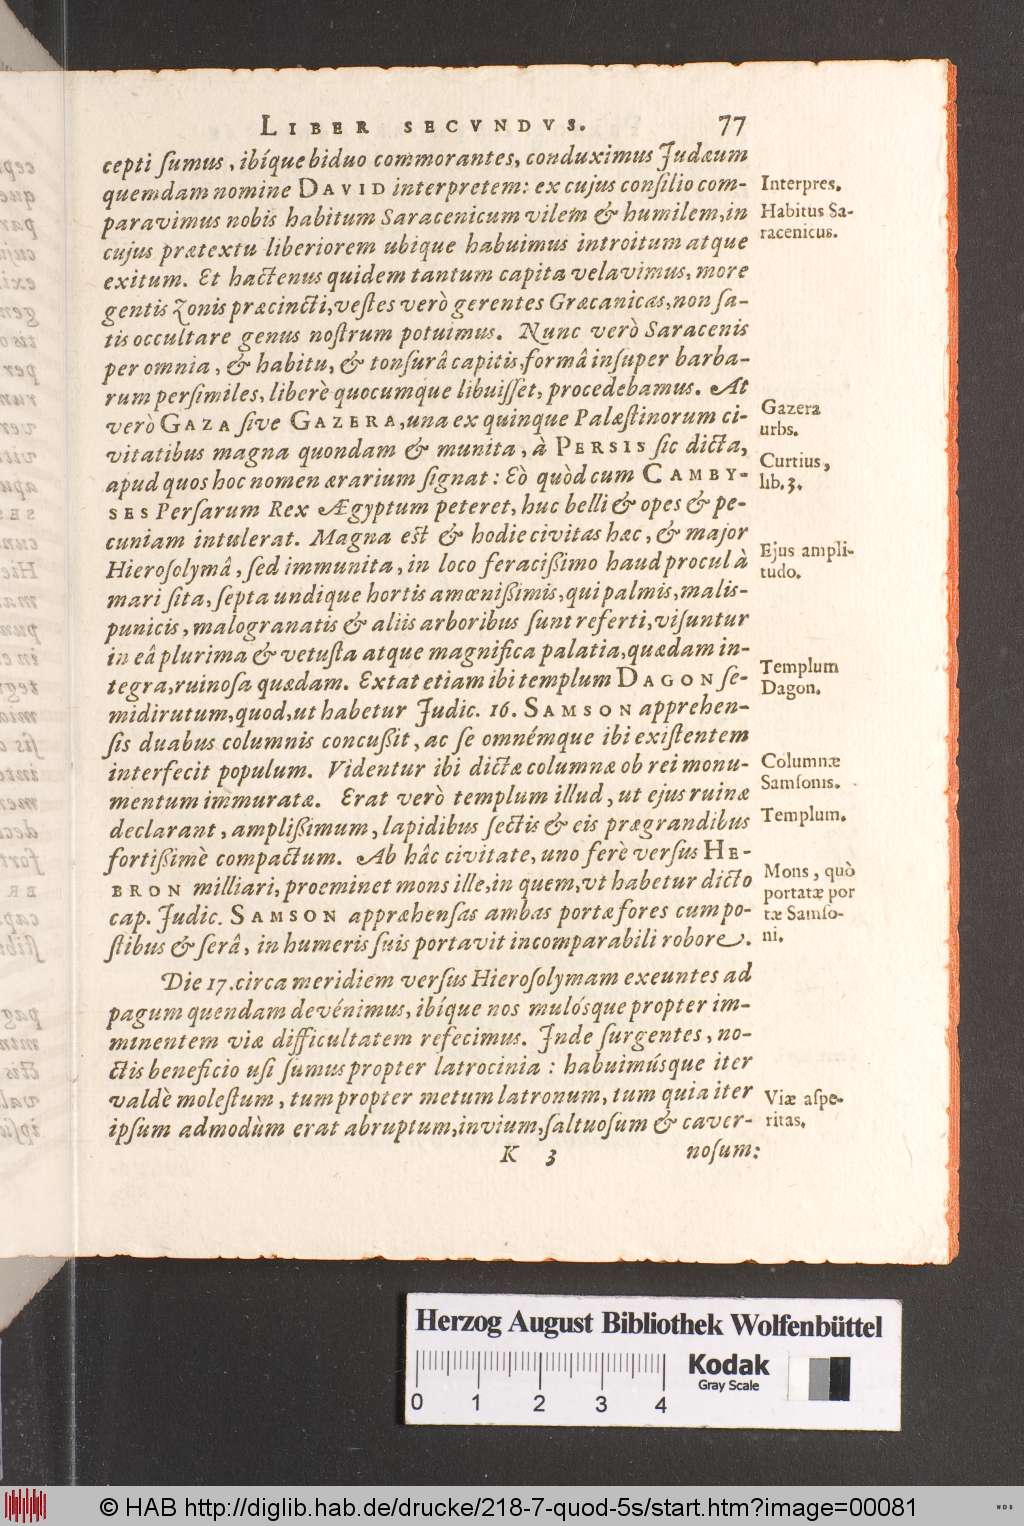 LIBER SECVNDVS. 77
cepti ſumus, ibíque biduo commorantes, conduximus Judæum
quemdam nomine DAVID interpretem: ex cujus conſilio com-
Interpres.
paravimus nobis habitum Saracenicum vilem & humilem, in
Habitus Sa-
racenicus.
cujus prætextu liberiorem ubique habuimus introitum atque
exitum. Et hactenus quidem tantum capita velavimus, more
gentis zonis præcincti, veſtes verò gerentes Græcanicas, non ſa-
tis occultare genus noſtrum potuimus. Nunc verò Saracenis
per omnia, & habitu, & tonſurâ capitis, formâ inſuper barba-
rum perſimiles, liberè quocumque libuiſſet, procedebamus. At
verò GAZA ſive GAZERA, una ex quinque Palæſtinorum ci-
Gazera
urbs.
vitatibus magna quondam & munita, à PERSIS ſic dicta,
apud quos hoc nomen ærarium ſignat: Eò quòd cum CAMBY-
Curtius,
lib. 3.
SES Perſarum Rex Ægyptum peteret, huc belli & opes & pe-
cuniam intulerat. Magna eſt & hodie civitas hæc, & major
Hieroſolymâ, ſed immunita, in loco feracißimo haud procul à
Ejus ampli-
tudo.
mari ſita, ſepta undique hortis amœnißimis, qui palmis, malis-
punicis, malogranatis & aliis arboribus ſunt referti, viſuntur
in eâ plurima & vetuſta atque magnifica palatia, quædam in-
tegra, ruinoſa quædam. Extat etiam ibi templum DAGON ſe-
Templum
Dagon.
midirutum, quod, ut habetur Judic. 16. SAMSON apprehen-
ſis duabus columnis concußit, ac ſe omnémque ibi exiſtentem
interfecit populum. Videntur ibi dictæ columnæ ob rei monu-
Columnæ
Samſonis.
mentum immuratæ. Erat verò templum illud, ut ejus ruinæ
declarant, amplißimum, lapidibus ſectis & eis prægrandibus
Templum.
fortißimè compactum. Ab hâc civitate, uno ferè verſus HE-
BRON milliari, proeminet mons ille, in quem, vt habetur dicto
Mons, quò
portatæ por
tæ Samſo-
ni.
cap. Judic. SAMSON appræhenſas ambas portæ fores cum po-
ſtibus & ſerâ, in humeris ſuis portavit incomparabili robore.
Die 17. circa meridiem verſus Hieroſolymam exeuntes ad
pagum quendam devénimus, ibíque nos mulósque propter im-
minentem viæ difficultatem refecimus. Inde ſurgentes, no-
ctis beneficio uſi ſumus propter latrocinia: habuimúsque iter
valdè moleſtum, tum propter metum latronum, tum quia iter
Viæ aſpe-
ritas.
ipſum admodùm erat abruptum, invium, ſaltuoſum & caver-
K 3 noſum:
Herzog August Bibliothek Wolfenbüttel
Kodak
Gray Scale
0 1 2 3 4
© HAB http://diglib.hab.de/drucke/218-7-quod-5s/start.htm?image=00081